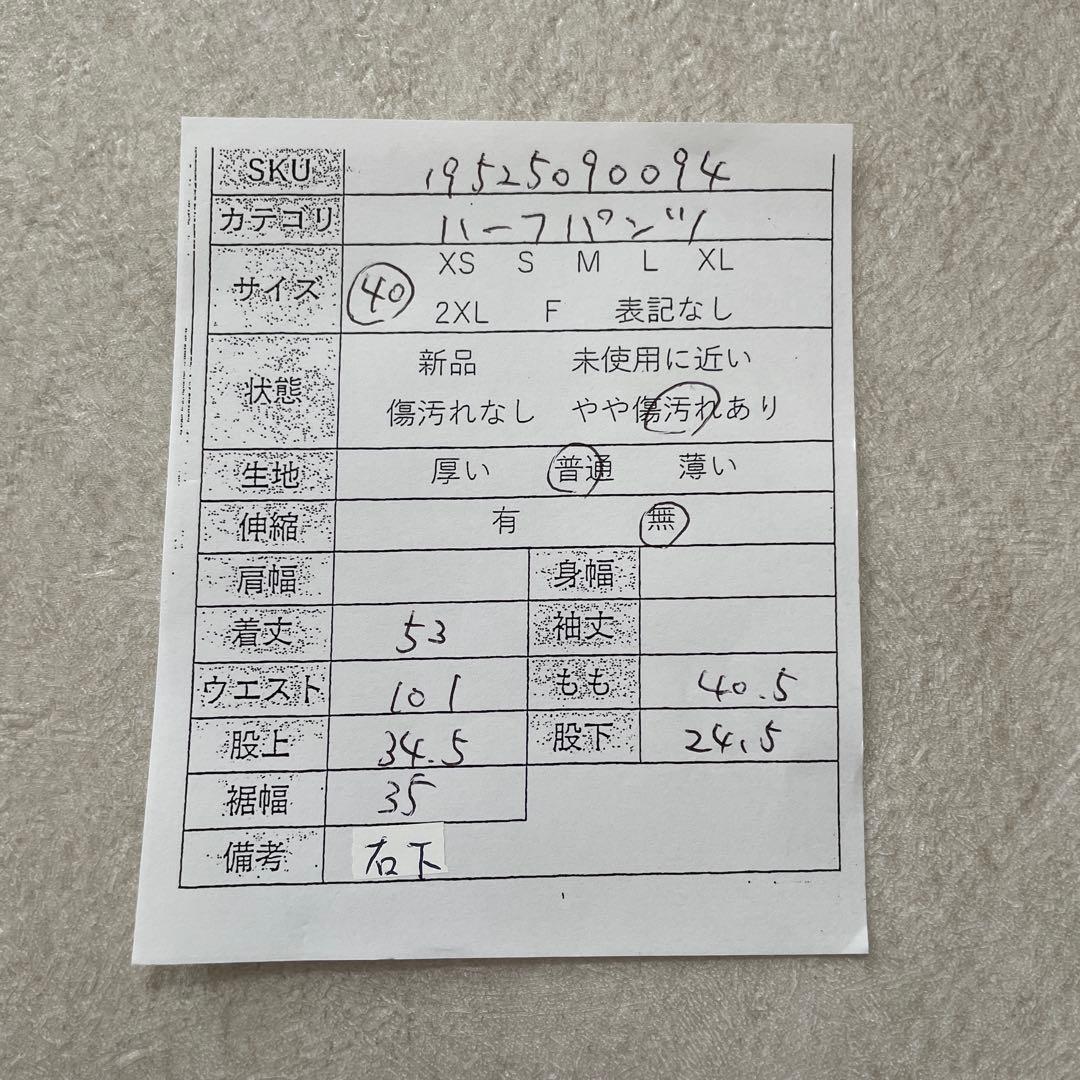 SKU 19525090094
カテゴリ ハーフパンツ
サイズ 40 XS S M L XL
2XL F 表記なし
状態 新品 未使用に近い
傷汚れなし やや傷汚れあり
生地 厚い 普通 薄い
伸縮 有 無
肩幅 身幅
着丈 53 袖丈
ウエスト 101 もも 40.5
股上 34.5 股下 24.5
裾幅 35
備考 右下